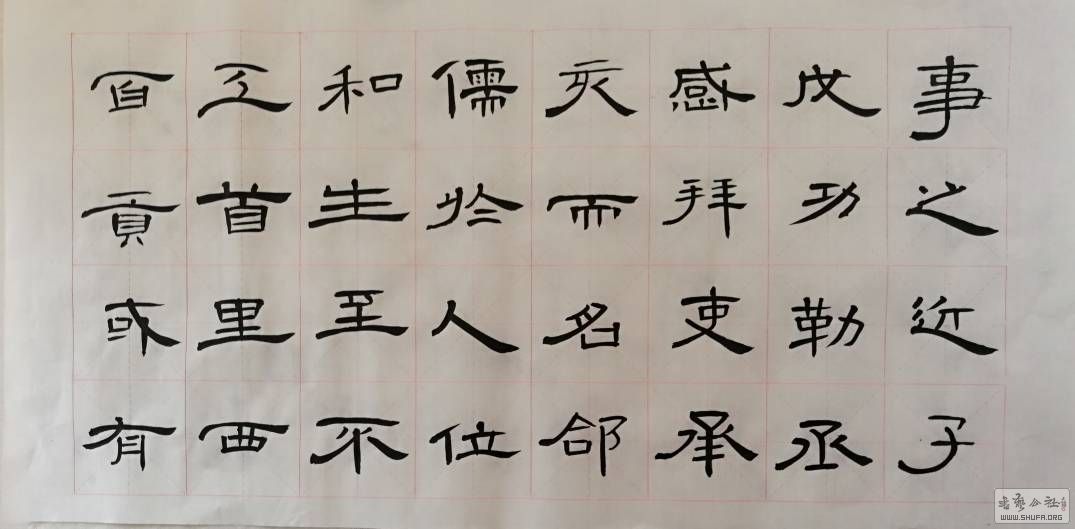 事之近子
戊功勒丞
感拜吏承
亥而名郃
儒於人位
和生至不
工首里西
百貢或有
书艺公社
WWW.SHUFA.ORG